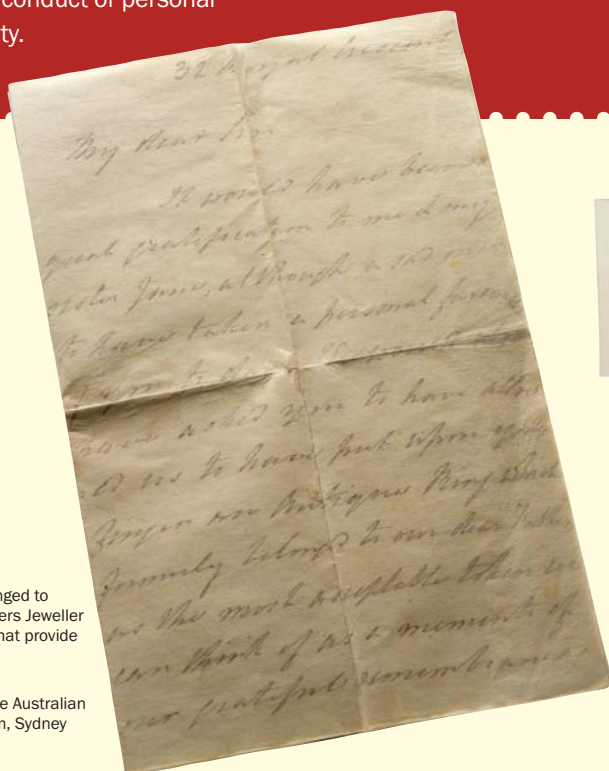 conduct of personal
ty.
32
My dear Sir
It would have been a
great gratification to me & my
sister Jane, although a sad one
to have taken a personal farewell
you to
have asked you to have allow
ed us to have put upon your
Finger an Antique Ring which
formerly belonged to our dear Father
as the most acceptable token we
can think of as a memento of
our grateful remembrance
nged to
ers Jeweller
hat provide
e Australian
m, Sydney